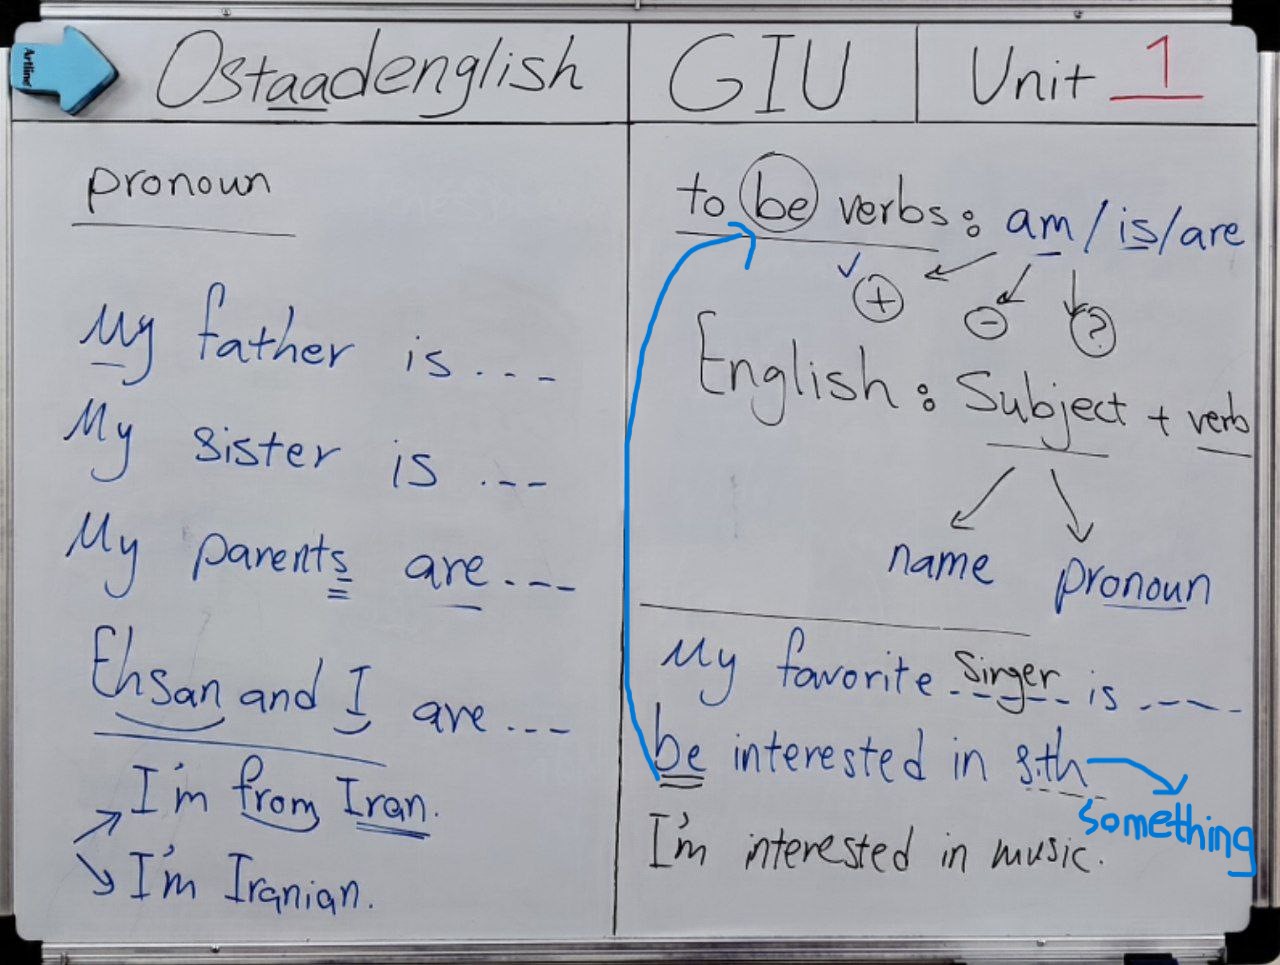 Artline
Ostaadenglish
GIU
Unit 1
pronoun
My father is ...
My sister is ...
My parents are ...
Ehsan and I are ...
I'm from Iran.
I'm Iranian.
to be verbs: am / is / are
✓ + - ?
English: Subject + verb
name pronoun
My favorite singer is ....
be interested in s.th
something
I'm interested in music.